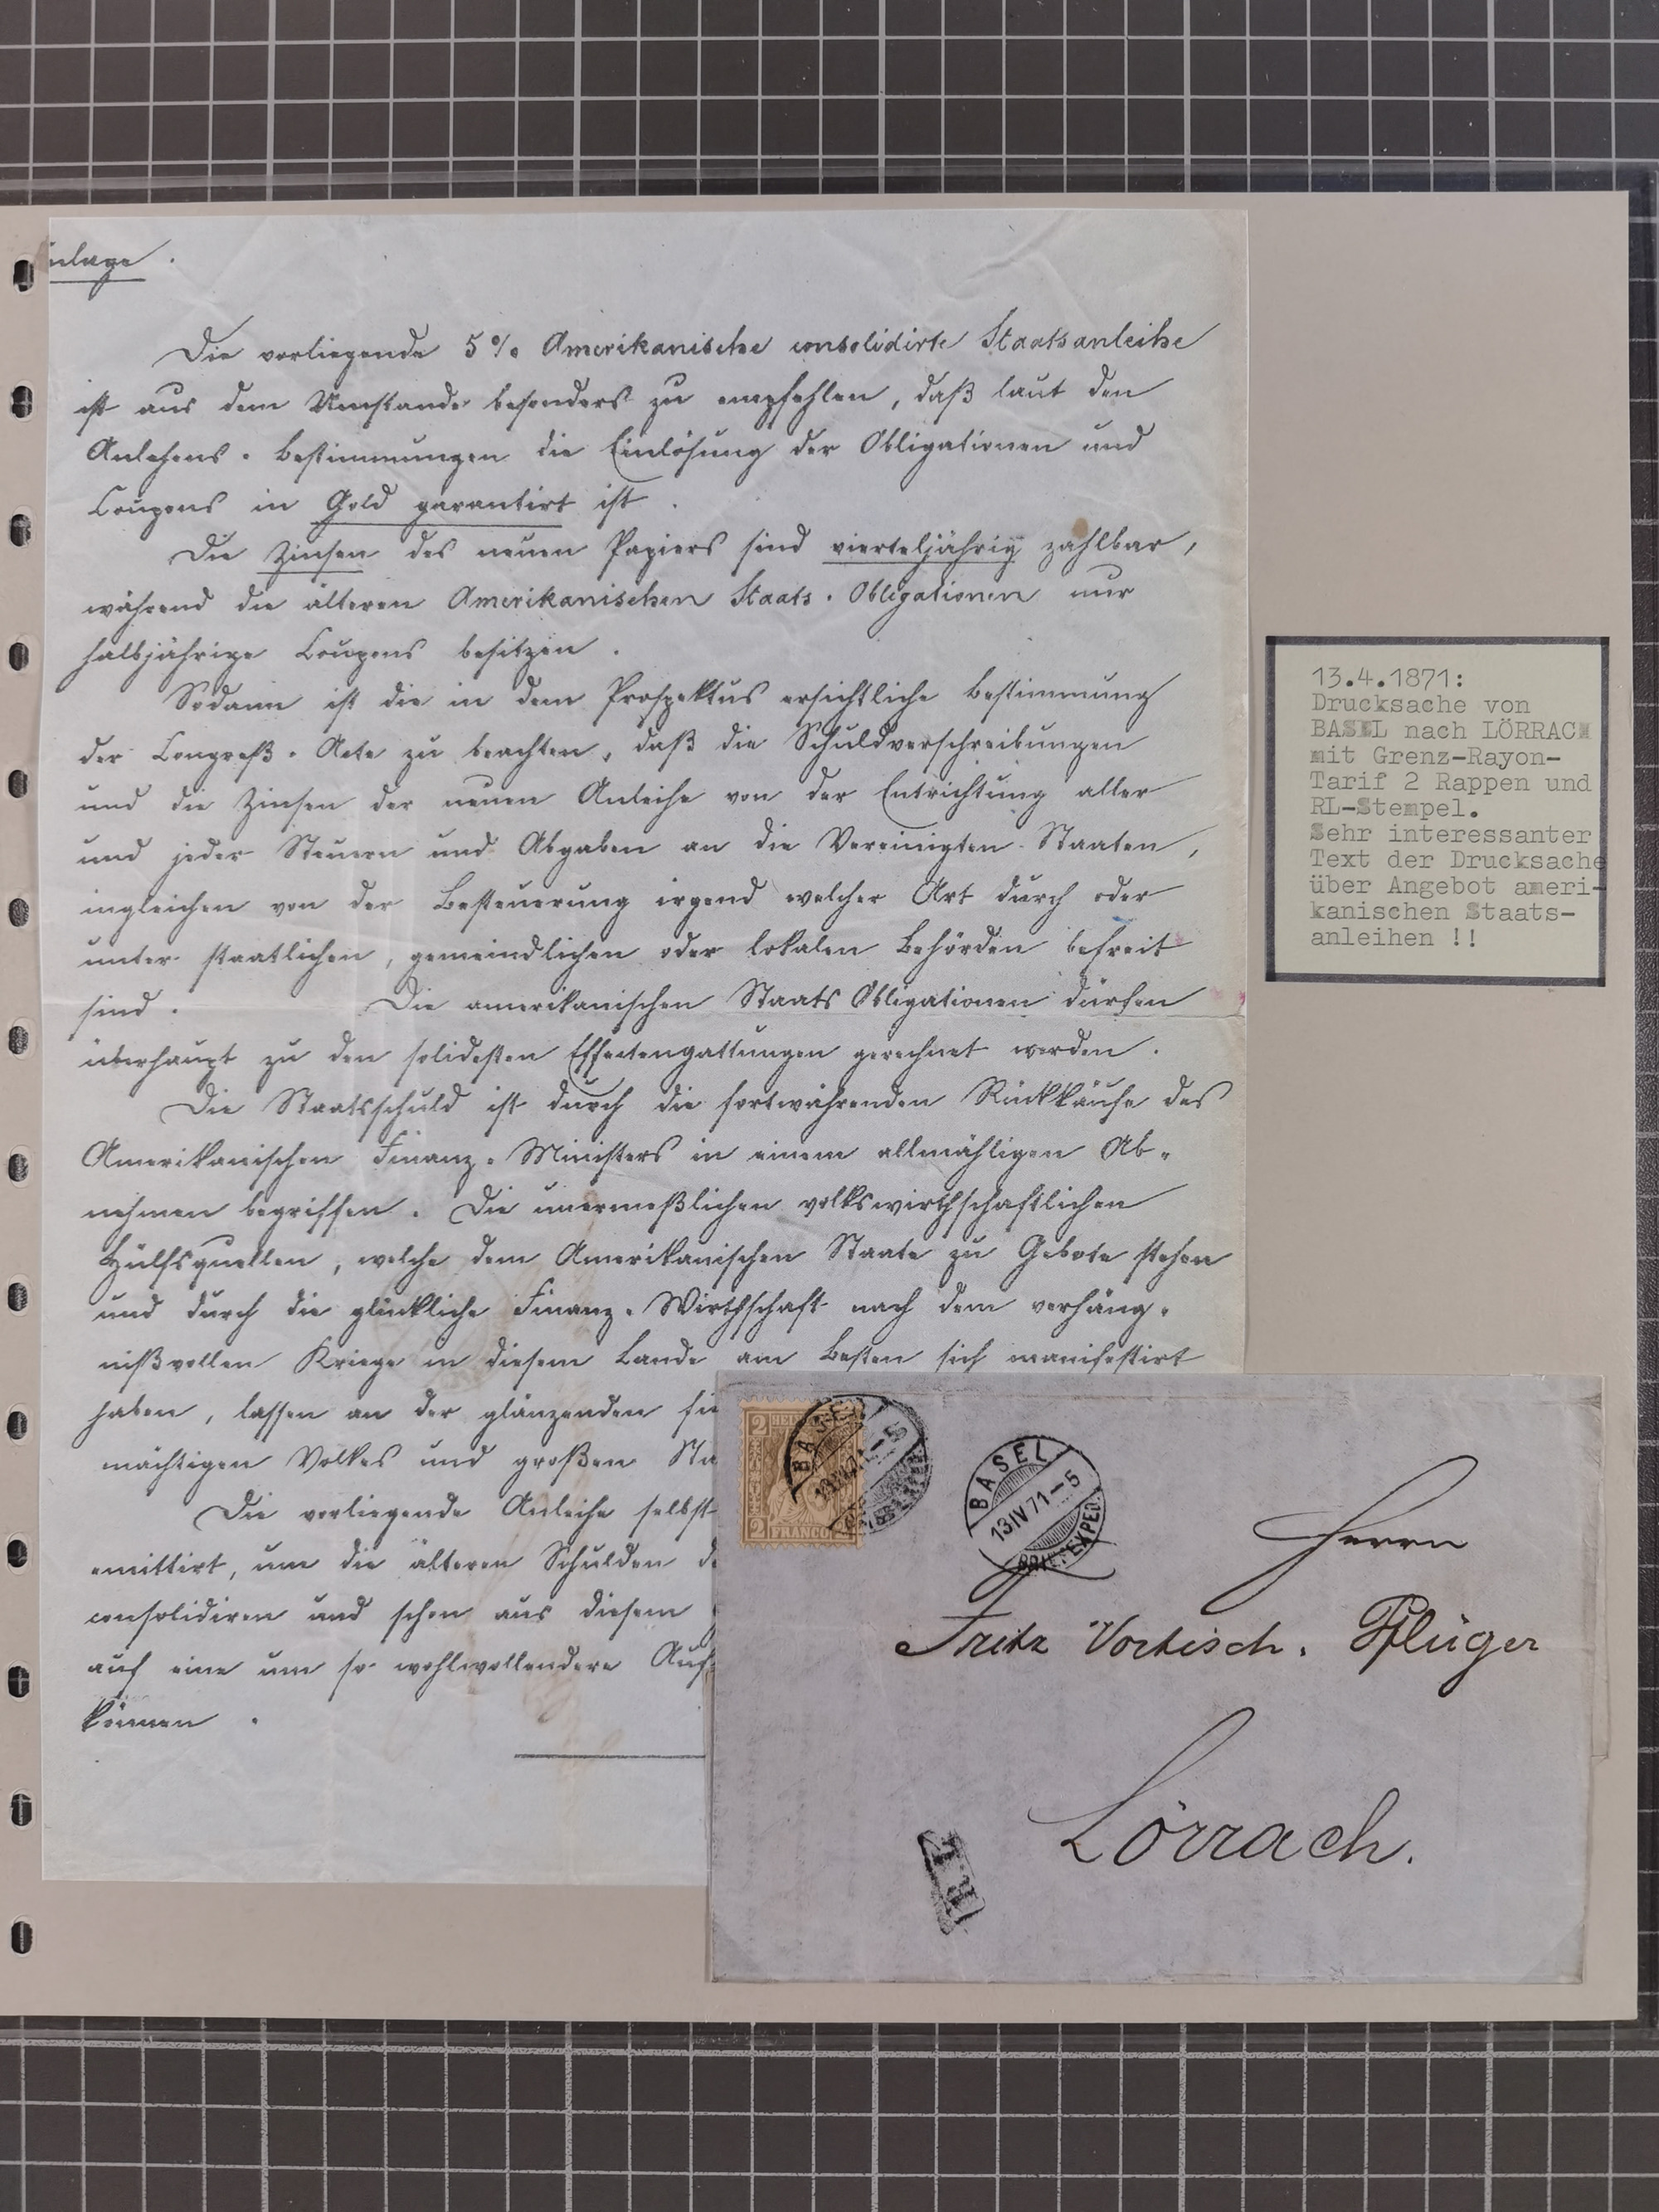 nlage.
Die vorliegende 5% Amerikanische consolidirte Staatsanleihe
ist aus dem Umstande besonders zu empfehlen, daß laut den
Anlehens-Bestimmungen die Einlösung der Obligationen und
Coupons in Gold garantirt ist.
Die Zinsen des neuen Papiers sind vierteljährig zahlbar,
während die älteren Amerikanischen Staats-Obligationen nur
halbjährige Coupons besitzen.
Sodann ist die in dem Prospektus ersichtliche Bestimmung
der Congreß-Acte zu beachten, daß die Schuldverschreibungen
und die Zinsen der neuen Anleihe von der Entrichtung aller
und jeder Steuern und Abgaben an die Vereinigten Staaten,
ingleichen von der Besteuerung irgend welcher Art durch oder
unter staatlichen, gemeindlichen oder lokalen Behörden befreit
sind. Die amerikanischen Staats Obligationen dürfen
überhaupt zu den solidesten Effectengattungen gerechnet werden.
Die Staatsschuld ist durch die fortwährenden Rückkäufe des
Amerikanischen Finanz-Ministers in einem allmähligen Ab-
nehmen begriffen. Die unermeßlichen volkswirthschaftlichen
Hülfsquellen, welche dem Amerikanischen Staate zu Gebote stehen
und durch die glückliche Finanz-Wirthschaft nach dem verhäng-
nißvollen Kriege in diesem Lande am Besten sich manifestirt
haben, lassen an der glänzenden fi
mächtigen Volkes und großen Sta
Die vorliegende Anleihe selbst
emittirt, um die älteren Schulden d
consolidiren und schon aus diesem
auf eine um so wohlwollendere Auf
können.
13.4.1871:
Drucksache von
BASEL nach LÖRRACH
mit Grenz-Rayon-
Tarif 2 Rappen und
RL-Stempel.
Sehr interessanter
Text der Drucksache
über Angebot ameri-
kanischen Staats-
anleihen !!
2 2
2 FRANCO
BASEL
BASEL
13 IV 71-5
BRIEF EXPED.
Herrn
Fritz Vortisch. Pflüger
Lörrach.
R.L.